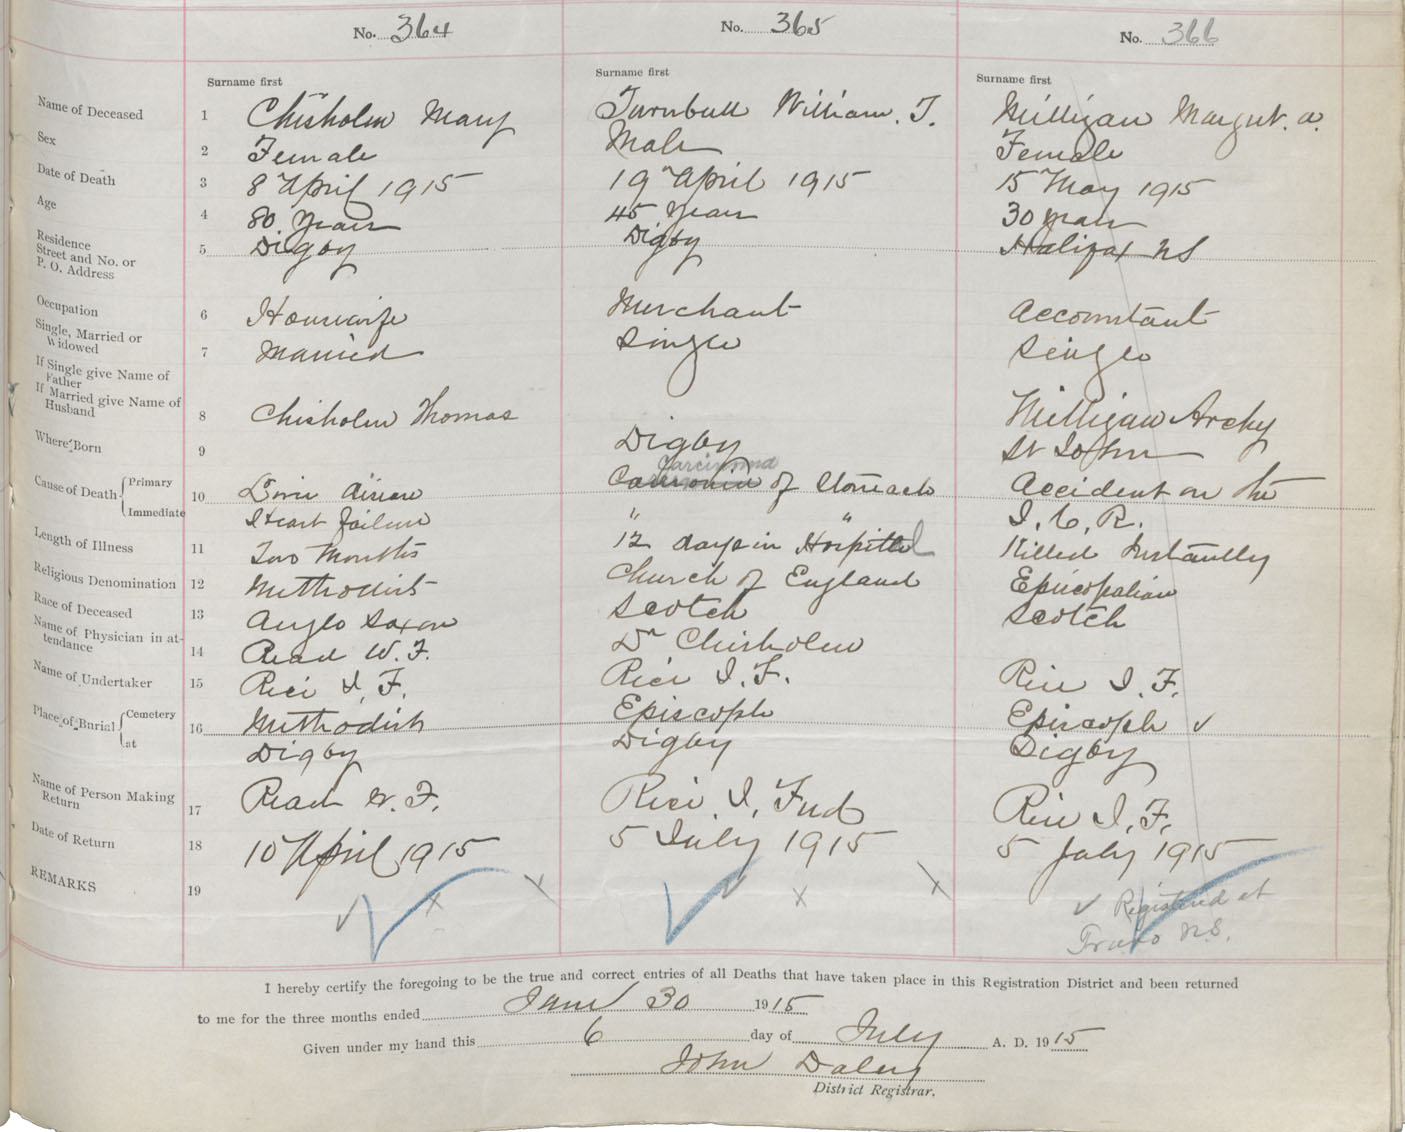 No. 364 No. 365 No. 366
Surname first Surname first Surname first
Name of Deceased 1 Chisholm Mary Turnbull William. T. Milligan Margret. A.
Sex 2 Female Male Female
Date of Death 3 8 April 1915 19 April 1915 15 May 1915
Age 4 80 Years 45 Years 30 years
Residence
Street and No. or
P. O. Address 5 Digby Digby Halifax NS
Occupation 6 Housewife Merchant Accountant
Single, Married or
Widowed 7 Married Single Single
If Single give Name of
Father
If Married give Name of
Husband 8 Chisholm Thomas Milligan Archy
Where Born 9 Digby St John
Carcinoma
Cause of Death Primary 10 Disease of Stomach Accident on the
Immediate Heart failure " " I. C. R.
Length of Illness 11 Two Months 12 days in Hospital Killed Instantly
Religious Denomination 12 Methodist Church of England Episcopalian
Race of Deceased 13 Anglo Saxon Scotch Scotch
Name of Physician in at-
tendance 14 Read W. F. Dr Chisholm
Name of Undertaker 15 Rice I. F. Rice I. F. Rice I. F.
Place of Burial Cemetery 16 Methodist Episcople Episcople ✓
at Digby Digby Digby
Name of Person Making
Return 17 Read W. F. Rice I. Fred Rice I. F.
Date of Return 18 10 April 1915 5 July 1915 5 July 1915
REMARKS 19 ✓ x ✓ x ✓ Registered at
Truro N.S.
I hereby certify the foregoing to be the true and correct entries of all Deaths that have taken place in this Registration District and been returned
to me for the three months ended June 30 1915
Given under my hand this 6 day of July A. D. 1915
John Daley
District Registrar.